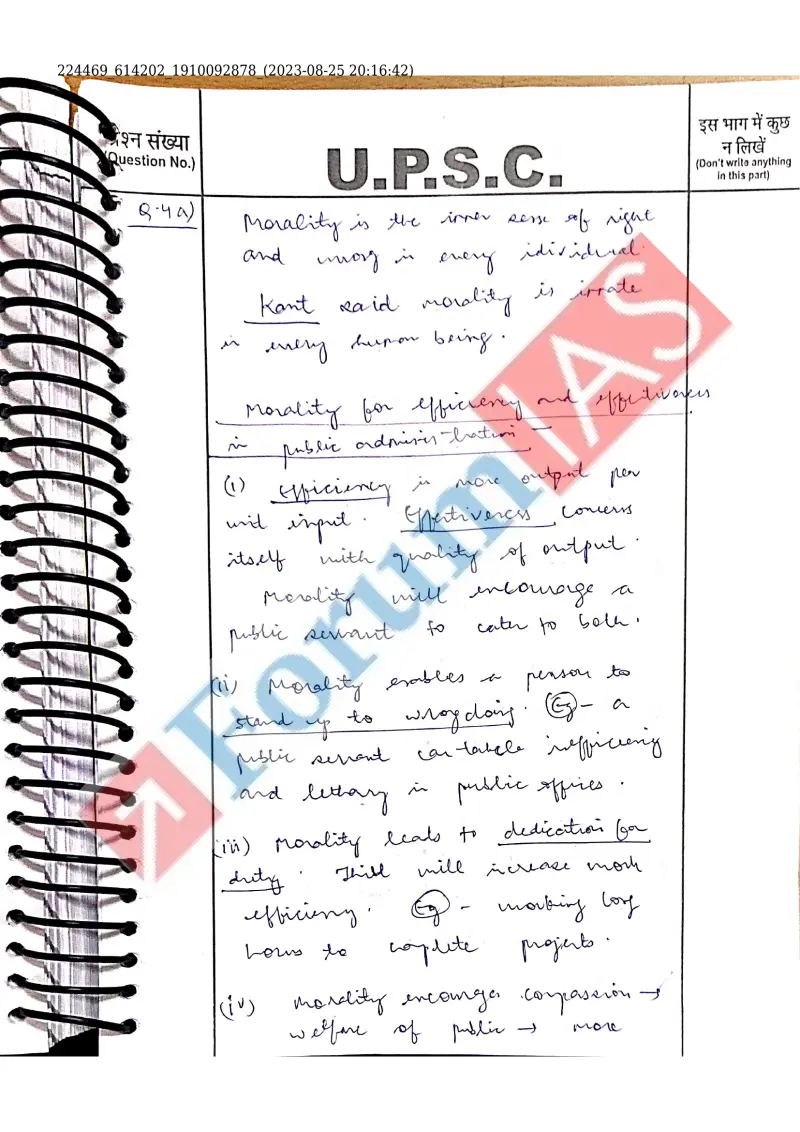 224469_614202_1910092878_(2023-08-25 20:16:42)
प्रश्न संख्या
(Question No.)
U.P.S.C.
इस भाग में कुछ
न लिखें
(Don't write anything
in this part)
Q.4a)
Morality is the inner sense of right
and wrong in every idividual.
Kant said morality is innate
in every human being.
Morality for efficiency and effectiveness
in public administration -
(i) Efficiency is more output per
unit input. Effectiveness concerns
itself with quality of output.
Morality will encourage a
public servant to cater to both.
(ii) Morality enables a person to
stand up to wrogdoing. Eg - a
public servant can tackle inefficiency
and lethary in public offices.
(iii) Morality leads to dedication for
duty. This will increase work
efficiency. Eg - working long
hours to complete projects.
(iv) Morality encourages compassion →
welfare of public → more
ForumIAS